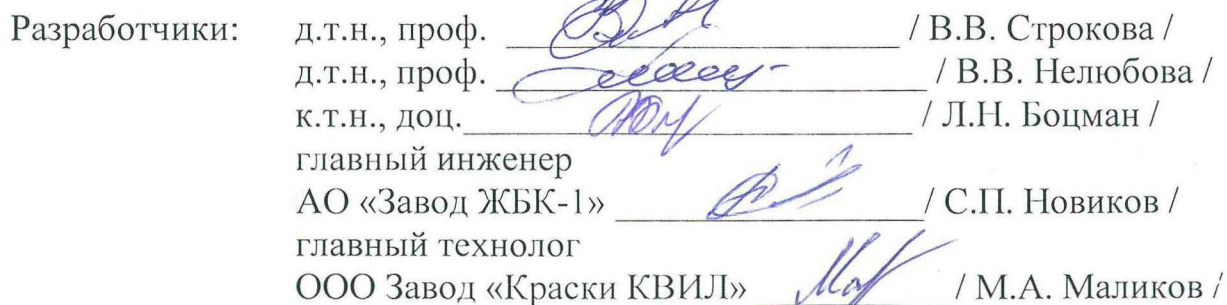 Разработчики: д.т.н., проф. / В.В. Строкова /
д.т.н., проф. / В.В. Нелюбова /
к.т.н., доц. / Л.Н. Боцман /
главный инженер
АО «Завод ЖБК-1» / С.П. Новиков /
главный технолог
ООО Завод «Краски КВИЛ» / М.А. Маликов /